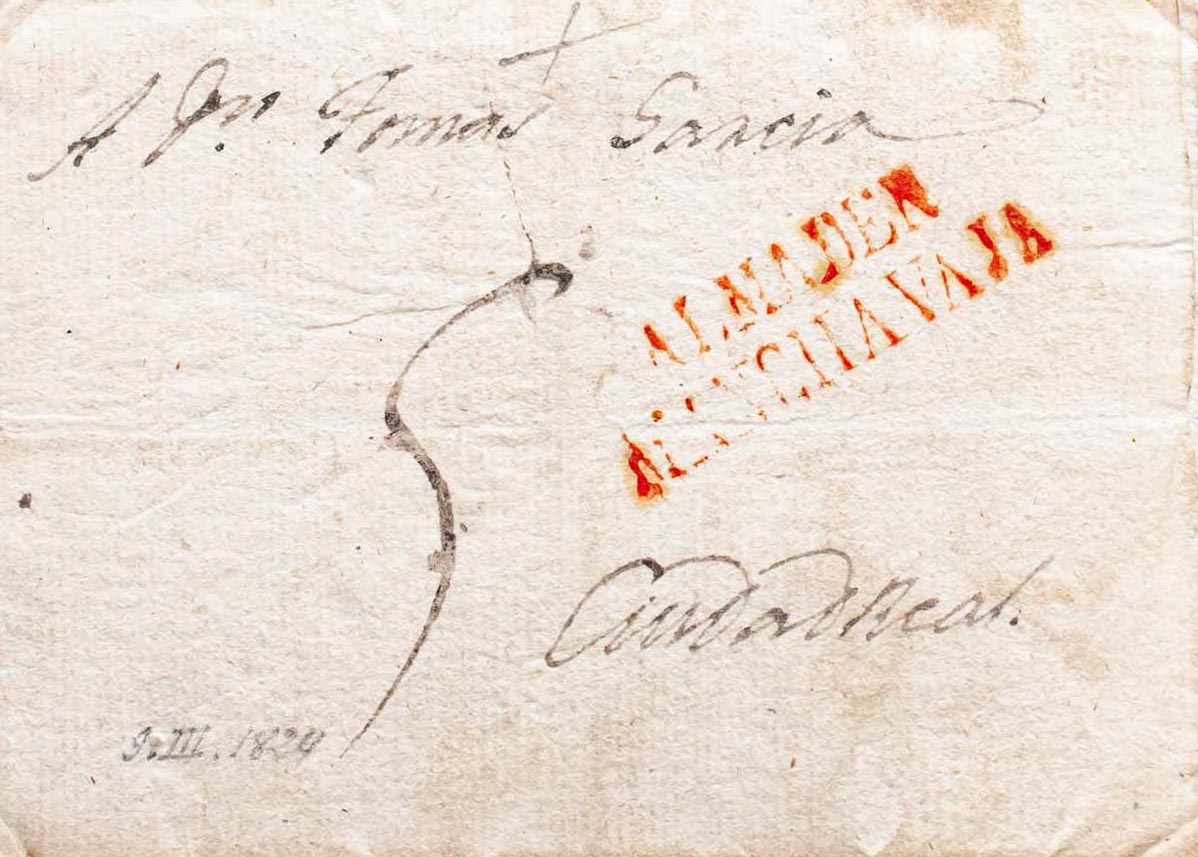 A Dn. Tomas Garcia
ALMADEN
MANCHA VAJA
5
Ciudad Real.
9.III.1824